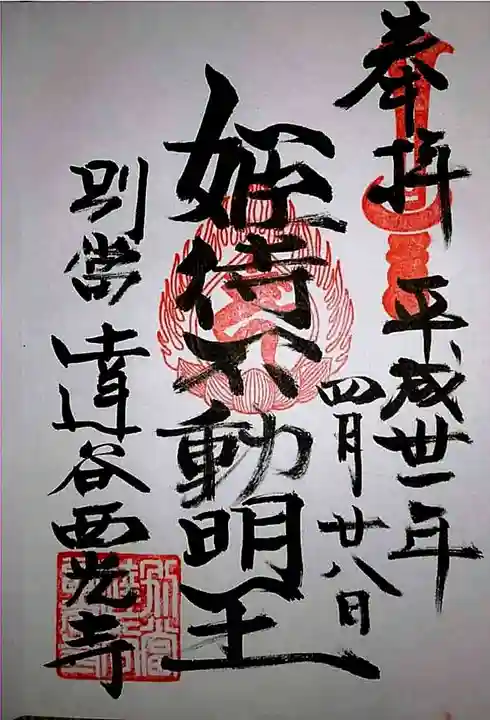 奉拝
平成丗一年
四月廿八日
姫待不動明王
別當
達谷西光寺